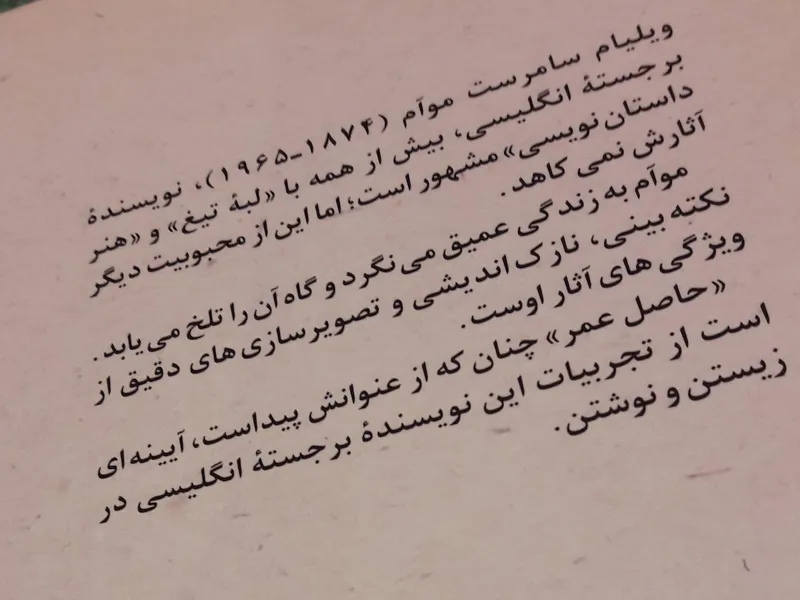 ویلیام سامرست موآم (۱۸۷۴ـ۱۹۶۵)، نویسندهٔ
برجستهٔ انگلیسی، بیش از همه با «لبهٔ تیغ» و «هنر
داستان‌نویسی» مشهور است؛ اما این از محبوبیت دیگر
آثارش نمی‌کاهد.
موآم به زندگی عمیق می‌نگرد و گاه آن را تلخ می‌یابد.
نکته‌بینی، نازک‌اندیشی و تصویرسازی‌های دقیق از
ویژگی‌های آثار اوست.
«حاصل عمر» چنان که از عنوانش پیداست، آیینه‌ای
است از تجربیات این نویسندهٔ برجستهٔ انگلیسی در
زیستن و نوشتن.